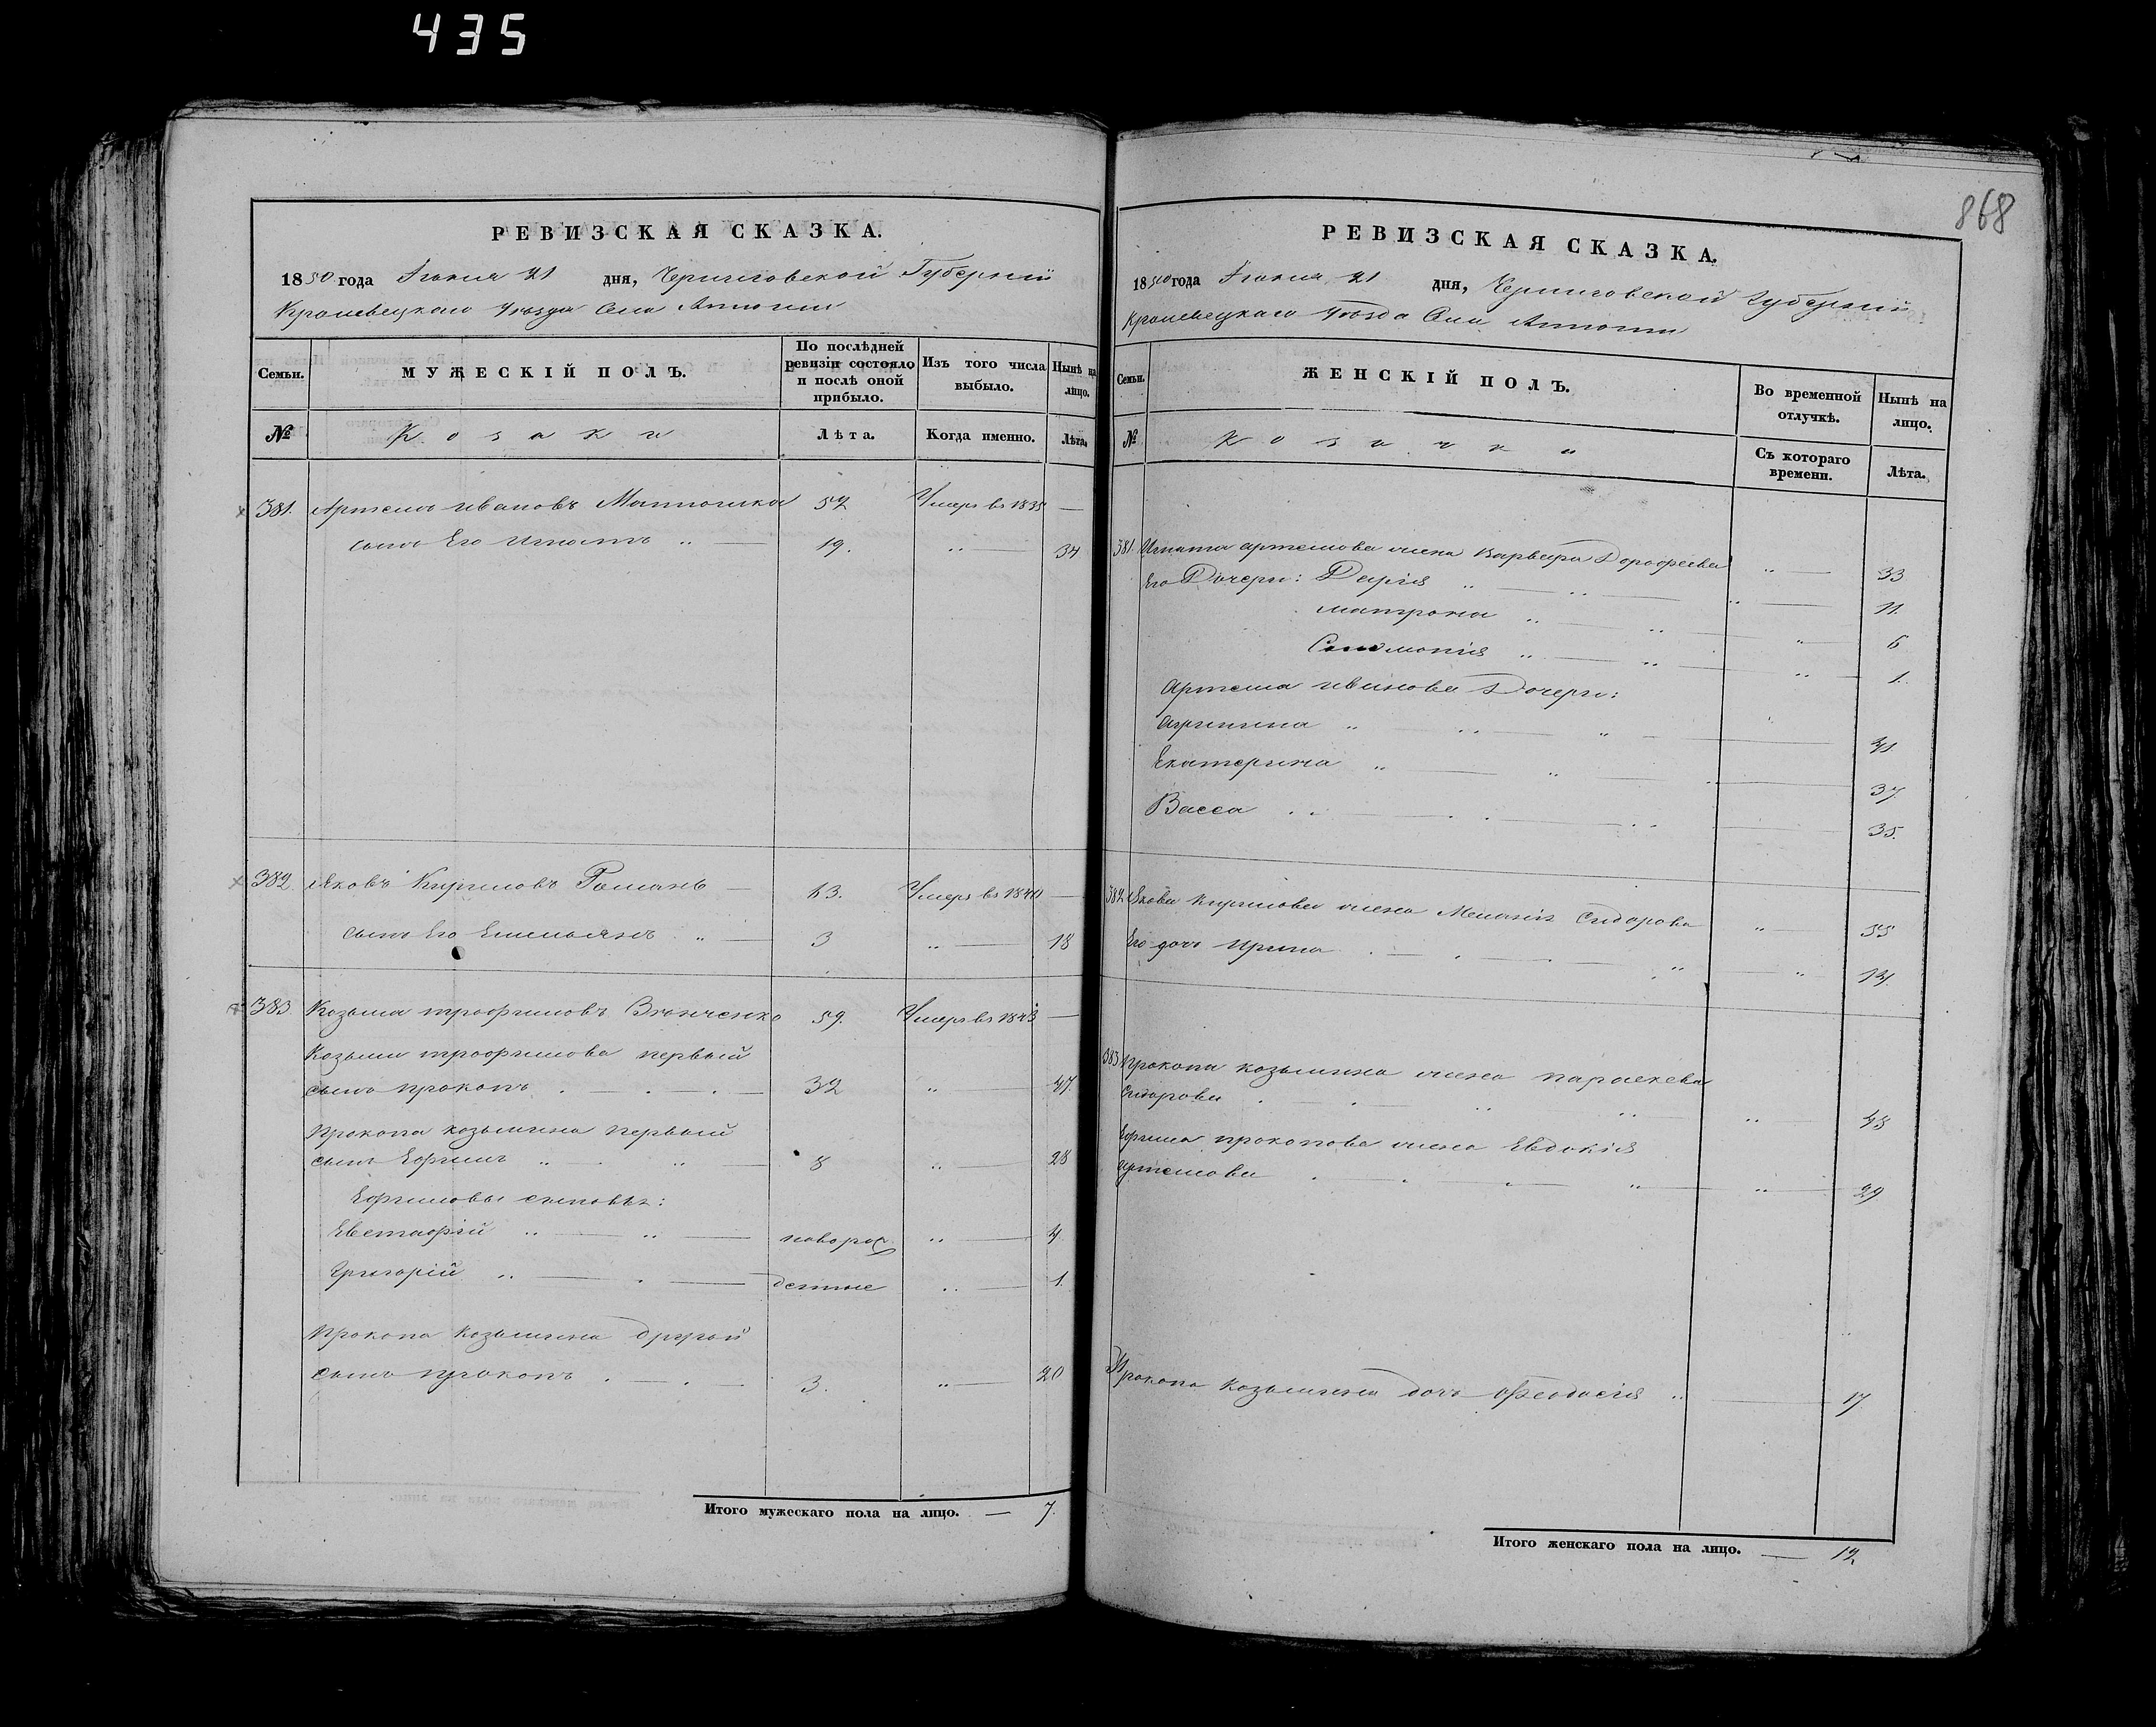 435
868
РЕВИЗСКАЯ СКАЗКА.
1850 года Іюния 21 дня, Черниговской Губерніи
Кролевецкаго Уѣзда Села
Семьи. МУЖЕСКІЙ ПОЛЪ. По послѣдней ревизіи состояло и послѣ оной прибыло. Изъ того числа выбыло. Нынѣ на лицо.
№ Козаки Лѣта. Когда именно. Лѣта.
381. Артемъ Ивановъ 57 Умеръ въ 1835 —
сынъ Его Игнатъ „ — 19. „ — 34
382. Яковъ Кириловъ Романъ — 63. Умеръ въ 1840 —
сынъ Его Емельянъ „ — 3 „ — 18
383. Козьма трофимовъ 59. Умеръ въ 1843 —
Козьми трофимова первый
сынъ прокопъ . — . — . — 32 „ — 47.
Прокопа козьмина первый
сынъ Ефимъ „ — „ — 8 „ — 23
Ефимовы сыновья:
Евстафій „ — „ — новорож „ — 4
Григорій „ — . — денные „ — 1.
Прокопа Козьмина другой
сынъ прокопъ . — . — 3. „ — 20
Итого мужескаго пола на лицо. — 7.
РЕВИЗСКАЯ СКАЗКА.
1850 года Іюния 21 дня, Черниговской Губерніи
Кролевецкаго Уѣзда Села
Семьи. ЖЕНСКІЙ ПОЛЪ. Во временной отлучкѣ. Нынѣ на лицо.
№ Козачки Съ котораго времени. Лѣта.
381. Игната артемова жена Варвара Дорофеева „ — 33
Его Дочери: Дарія „ — „ — „ — 11.
матрона „ — „ — „ — 6
„ — „ — „ — 1.
Артема иванова Дочери:
агрипина „ — „ — „ — 41
Екатерина „ — „ — „ — 37.
Васса „ — „ — „ — 35.
382 Якова Кирилова жена Меланія Сидорова „ — 55
Его дочь Ирина . — . — . — „ — „ 14.
383 Прокопа козьмина жена параскева
Сидорова . — . — „ — „ — „ — 48
Ефима прокопова жена Евдокія
артемова . — . — „ — „ — 29
Прокопа Козьмина дочь Феодосія „ — 17
Итого женскаго пола на лицо. — 12.